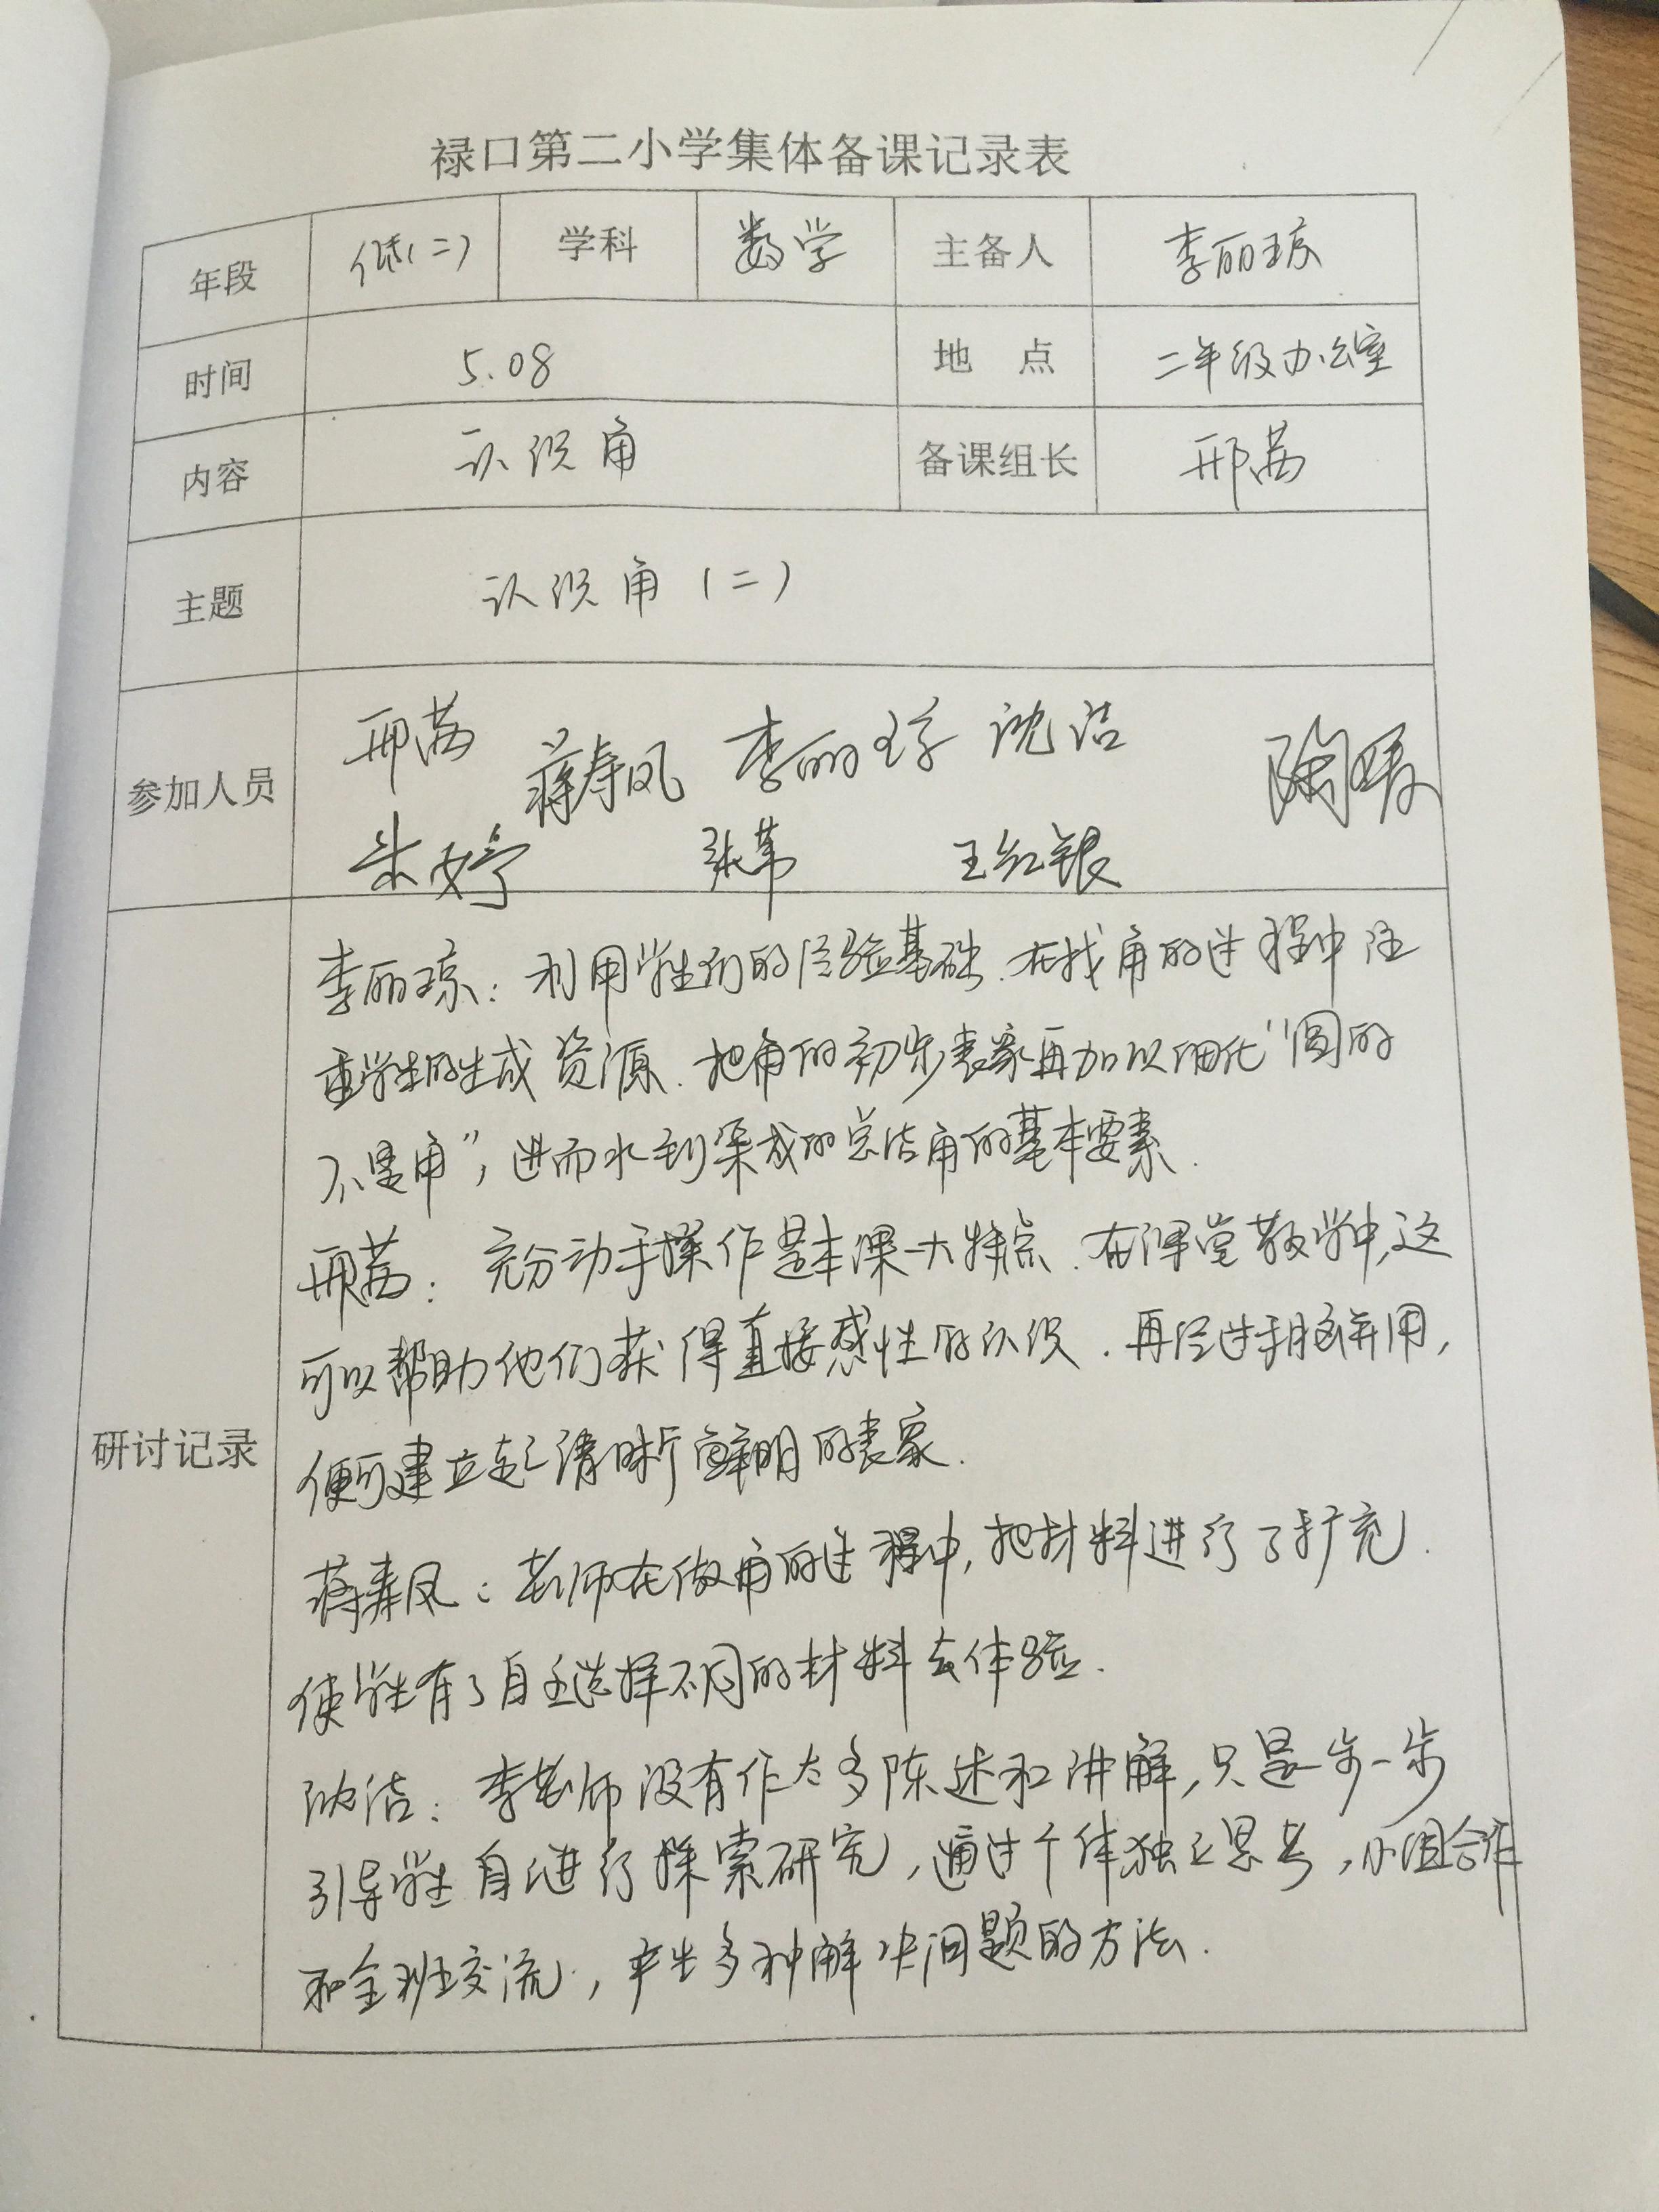 禄口第二小学集体备课记录表
年段 低(二) 学科 数学 主备人 李丽琼
时间 5.08 地 点 二年级办公室
内容 认识角 备课组长 邢茜
主题 认识角(二)
参加人员 邢茜 蒋寿凤 李丽琼 沈洁 陶
朱婷 张苇 王红银
研讨记录
李丽琼：利用学生们的经验基础.在找角的过程中注
重学生的生成资源.把角的初步表象再加以细化"圆的
不是角",进而水到渠成的总结角的基本要素.
邢茜：充分动手操作是本课一大特点.在课堂教学中,这
可以帮助他们获得直接感性的认识.再经过手脑并用,
便可建立起清晰鲜明的表象.
蒋寿凤：老师在做角的过程中,把材料进行了扩充.
使学生有了自主选择不同的材料去体验.
沈洁：李老师没有作太多陈述和讲解,只是一步一步
引导学生自己进行探索研究,通过个体独立思考,小组合作
和全班交流,产生多种解决问题的方法.